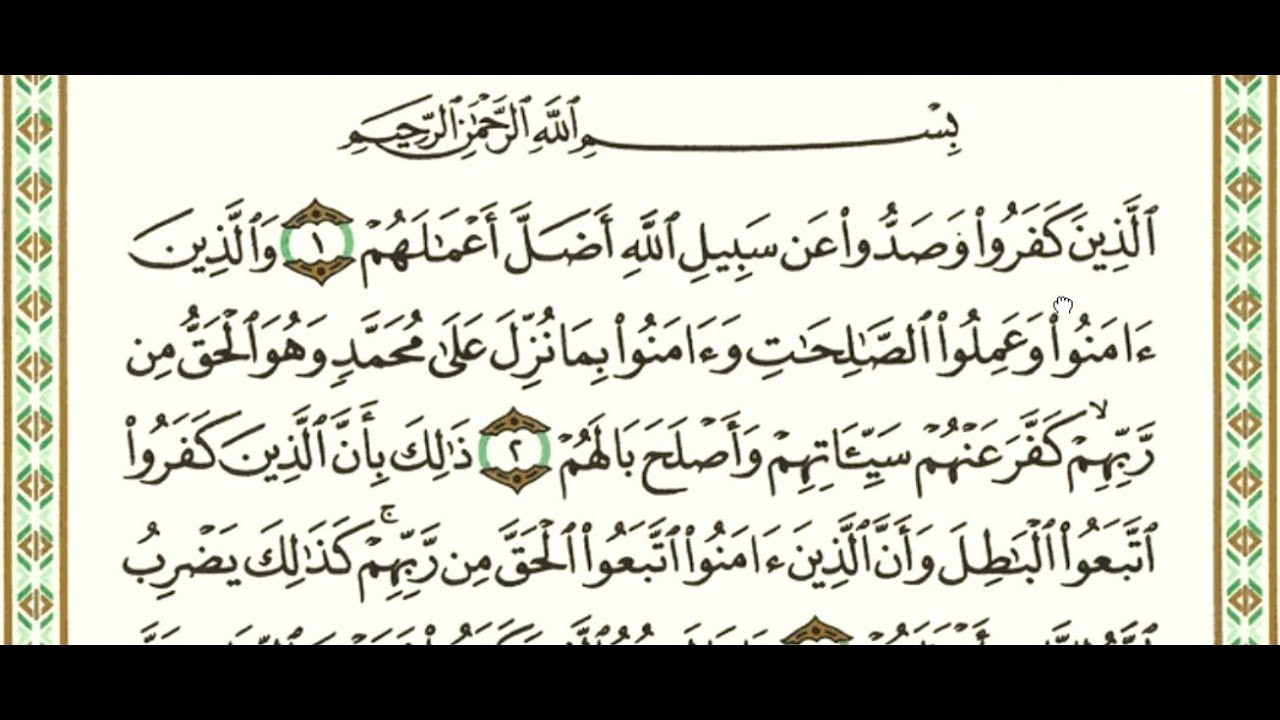 بِسْمِ ٱللَّهِ ٱلرَّحْمَٰنِ ٱلرَّحِيمِ
ٱلَّذِينَ كَفَرُوا۟ وَصَدُّوا۟ عَن سَبِيلِ ٱللَّهِ أَضَلَّ أَعْمَٰلَهُمْ ١ وَٱلَّذِينَ
ءَامَنُوا۟ وَعَمِلُوا۟ ٱلصَّٰلِحَٰتِ وَءَامَنُوا۟ بِمَا نُزِّلَ عَلَىٰ مُحَمَّدٍ وَهُوَ ٱلْحَقُّ مِن
رَّبِّهِمْ ۙ كَفَّرَ عَنْهُمْ سَيِّـَٔاتِهِمْ وَأَصْلَحَ بَالَهُمْ ٢ ذَٰلِكَ بِأَنَّ ٱلَّذِينَ كَفَرُوا۟
ٱتَّبَعُوا۟ ٱلْبَٰطِلَ وَأَنَّ ٱلَّذِينَ ءَامَنُوا۟ ٱتَّبَعُوا۟ ٱلْحَقَّ مِن رَّبِّهِمْ ۚ كَذَٰلِكَ يَضْرِبُ